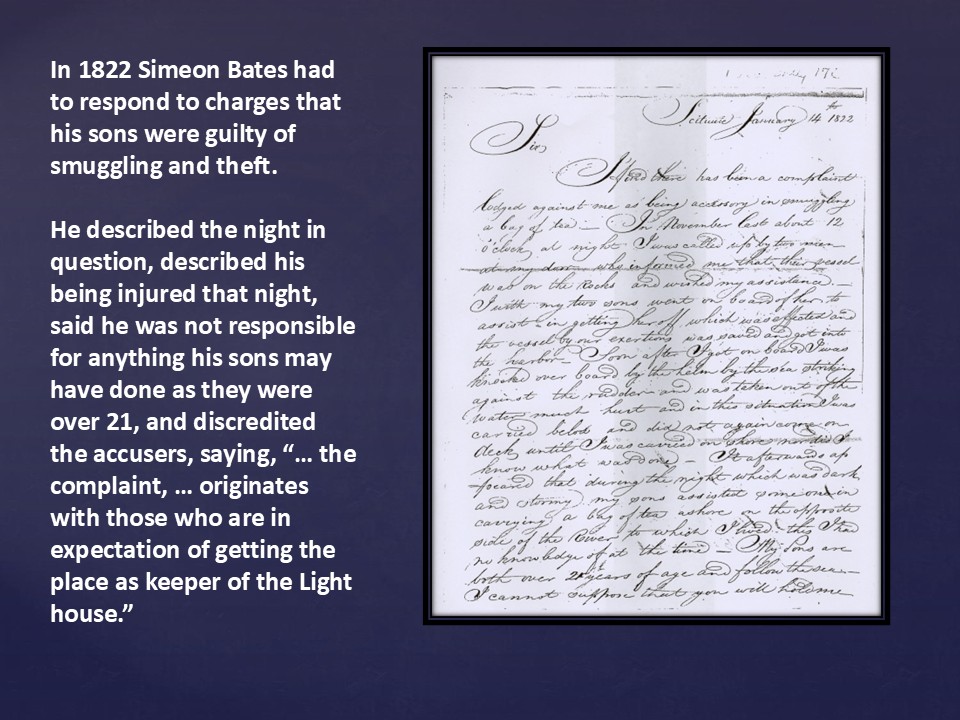 In 1822 Simeon Bates had
to respond to charges that
his sons were guilty of
smuggling and theft.
He described the night in
question, described his
being injured that night,
said he was not responsible
for anything his sons may
have done as they were
over 21, and discredited
the accusers, saying, “… the
complaint, … originates
with those who are in
expectation of getting the
place as keeper of the Light
house.”
Scituate January 14th 1822
Sir,
I find there has been a complaint
lodged against me as being accessory in smuggling
a bag of tea — In November last about 12
o'clock at night I was called up by two men
who informed me that their vessel
was on the Rocks and wished my assistance. —
I with my two sons went on board of her to
assist in getting her off which was effected and
the vessel by our exertions was saved and got into
the harbor — Soon after I got on board I was
knocked over board by the helm by the sea striking
against the rudder and was taken out of the
water much hurt and in this situation I was
carried below and did not again come on
deck until I was carried on shore nor did I
know what was done — It afterwards ap
peared that during the night which was dark
and stormy my sons assisted some one in
carrying a bag of tea ashore on the opposite
side of the River to which I lived this I had
no knowledge of at the time — My Sons are
both over 21 years of age and follow the sea —
I cannot suppose that you will hold me